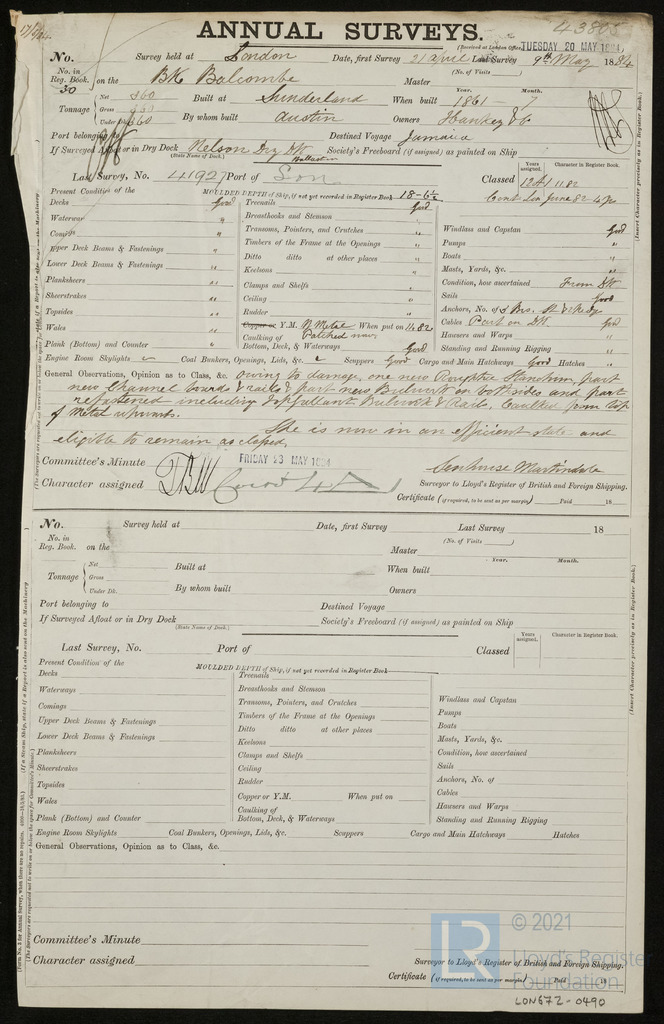 ANNUAL SURVEYS.
43805
(Received at London Office,
TUESDAY 20 MAY 1884
No. Survey held at London Date, first Survey 21 April Last Survey 9th May 1884
(No. of Visits )
No. in Reg. Book. 30 on the Bk Balcombe Master
Year. Month.
Tonnage Net 360 Built at Sunderland When built 1861 - 7
Gross 360
Under Dk 360 By whom built Austin Owners Hankey & Co
Port belonging to Destined Voyage Jamaica
If Surveyed Afloat or in Dry Dock Nelson Dry Dk Society's Freeboard (if assigned) as painted on Ship
(State Name of Dock.)
Last Survey, No. 41927 Port of Lon Classed 12A1 11.82
Years assigned. Character in Register Book.
Cont Lon June 82 - 4 yrs
Present Condition of the MOULDED DEPTH of Ship, if not yet recorded in Register Book 18-6½
Decks Good Treenails Good
Waterways " Breasthooks and Stemson " Windlass and Capstan Good
Comings " Transoms, Pointers, and Crutches " Pumps "
Upper Deck Beams & Fastenings " Timbers of the Frame at the Openings " Boats "
Lower Deck Beams & Fastenings " Ditto ditto at other places " Masts, Yards, &c. "
Planksheers " Keelsons " Condition, how ascertained From Dk
Sheerstrakes " Clamps and Shelfs " Sails Good
Topsides " Ceiling " Anchors, No. of
Wales " Rudder " Cables Part on Dk Good
Plank (Bottom) and Counter " Copper or Y.M. Y Metal When put on 11.82 Hawsers and Warps "
Caulking of Bottom, Deck, & Waterways Good Standing and Running Rigging "
Patched now
Engine Room Skylights Coal Bunkers, Openings, Lids, &c. Scuppers Good Cargo and Main Hatchways Good Hatches "
General Observations, Opinion as to Class, &c. Owing to damage, one new Stanchion, part
new Channel boards & rails & part new Bulwark on both sides and part
refastened including Topgallant Bulwark & Rails, Caulked from top
of Metal upwards.
She is now in an efficient state and
eligible to remain as classed.
Committee's Minute FRIDAY 23 MAY 1884
Character assigned
Martindale
Surveyor to Lloyd's Register of British and Foreign Shipping.
Certificate (if required, to be sent as per margin) Paid 18
No. Survey held at Date, first Survey Last Survey 18
(No. of Visits )
No. in Reg. Book. on the Master
Year. Month.
Tonnage Net Built at When built
Gross
Under Dk. By whom built Owners
Port belonging to Destined Voyage
If Surveyed Afloat or in Dry Dock Society's Freeboard (if assigned) as painted on Ship
(State Name of Dock.)
Years assigned. Character in Register Book.
Last Survey, No. Port of Classed
Present Condition of the MOULDED DEPTH of Ship, if not yet recorded in Register Book
Decks Treenails
Waterways Breasthooks and Stemson Windlass and Capstan
Comings Transoms, Pointers, and Crutches Pumps
Upper Deck Beams & Fastenings Timbers of the Frame at the Openings Boats
Lower Deck Beams & Fastenings Ditto ditto at other places Masts, Yards, &c.
Planksheers Keelsons Condition, how ascertained
Sheerstrakes Clamps and Shelfs Sails
Topsides Ceiling Anchors, No. of
Wales Rudder Cables
Plank (Bottom) and Counter Copper or Y.M. When put on Hawsers and Warps
Caulking of Bottom, Deck, & Waterways Standing and Running Rigging
Engine Room Skylights Coal Bunkers, Openings, Lids, &c. Scuppers Cargo and Main Hatchways Hatches
General Observations, Opinion as to Class, &c.
Committee's Minute
Character assigned
Surveyor to Lloyd's Register of British and Foreign Shipping.
Certificate (if required, to be sent as per margin) Paid 18
(Insert Character precisely as in Register Book.)
LR
© 2021
Lloyd's Register
Foundation
LON672-0490